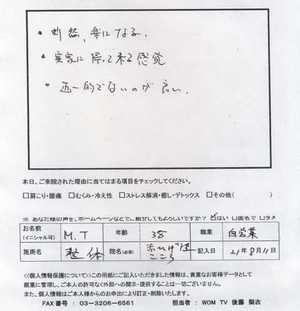 • 断然、楽になる。
• 実家に帰って来る感覚
• 画一的でないのが良い。
本日、ご来院された理由に当てはまる項目をチェックしてください。
□肩こり・腰痛 □むくみ・冷え性 □ストレス解消・癒し・デトックス □その他( )
※ あなた様の声を、ホームページなどで、紹介してもよろしいですか? はい 匿名で ダメ
お名前(イニシャル可) M.T 年令 38 職業 自営業
施術名 整体 院名(必須) こころ 記入日 21年8月11日
◇個人情報保護について◇この用紙にご記入いただきました情報は、貴重なお客様データとして
厳重に管理し、ご本人の許可なく外部への開示・提供することは一切ございません。
また、個人情報はご本人様からのお申出により訂正・削除いたします。
FAX番号 : 03-3206-6561 担当者 : WOM TV 後藤 梨衣